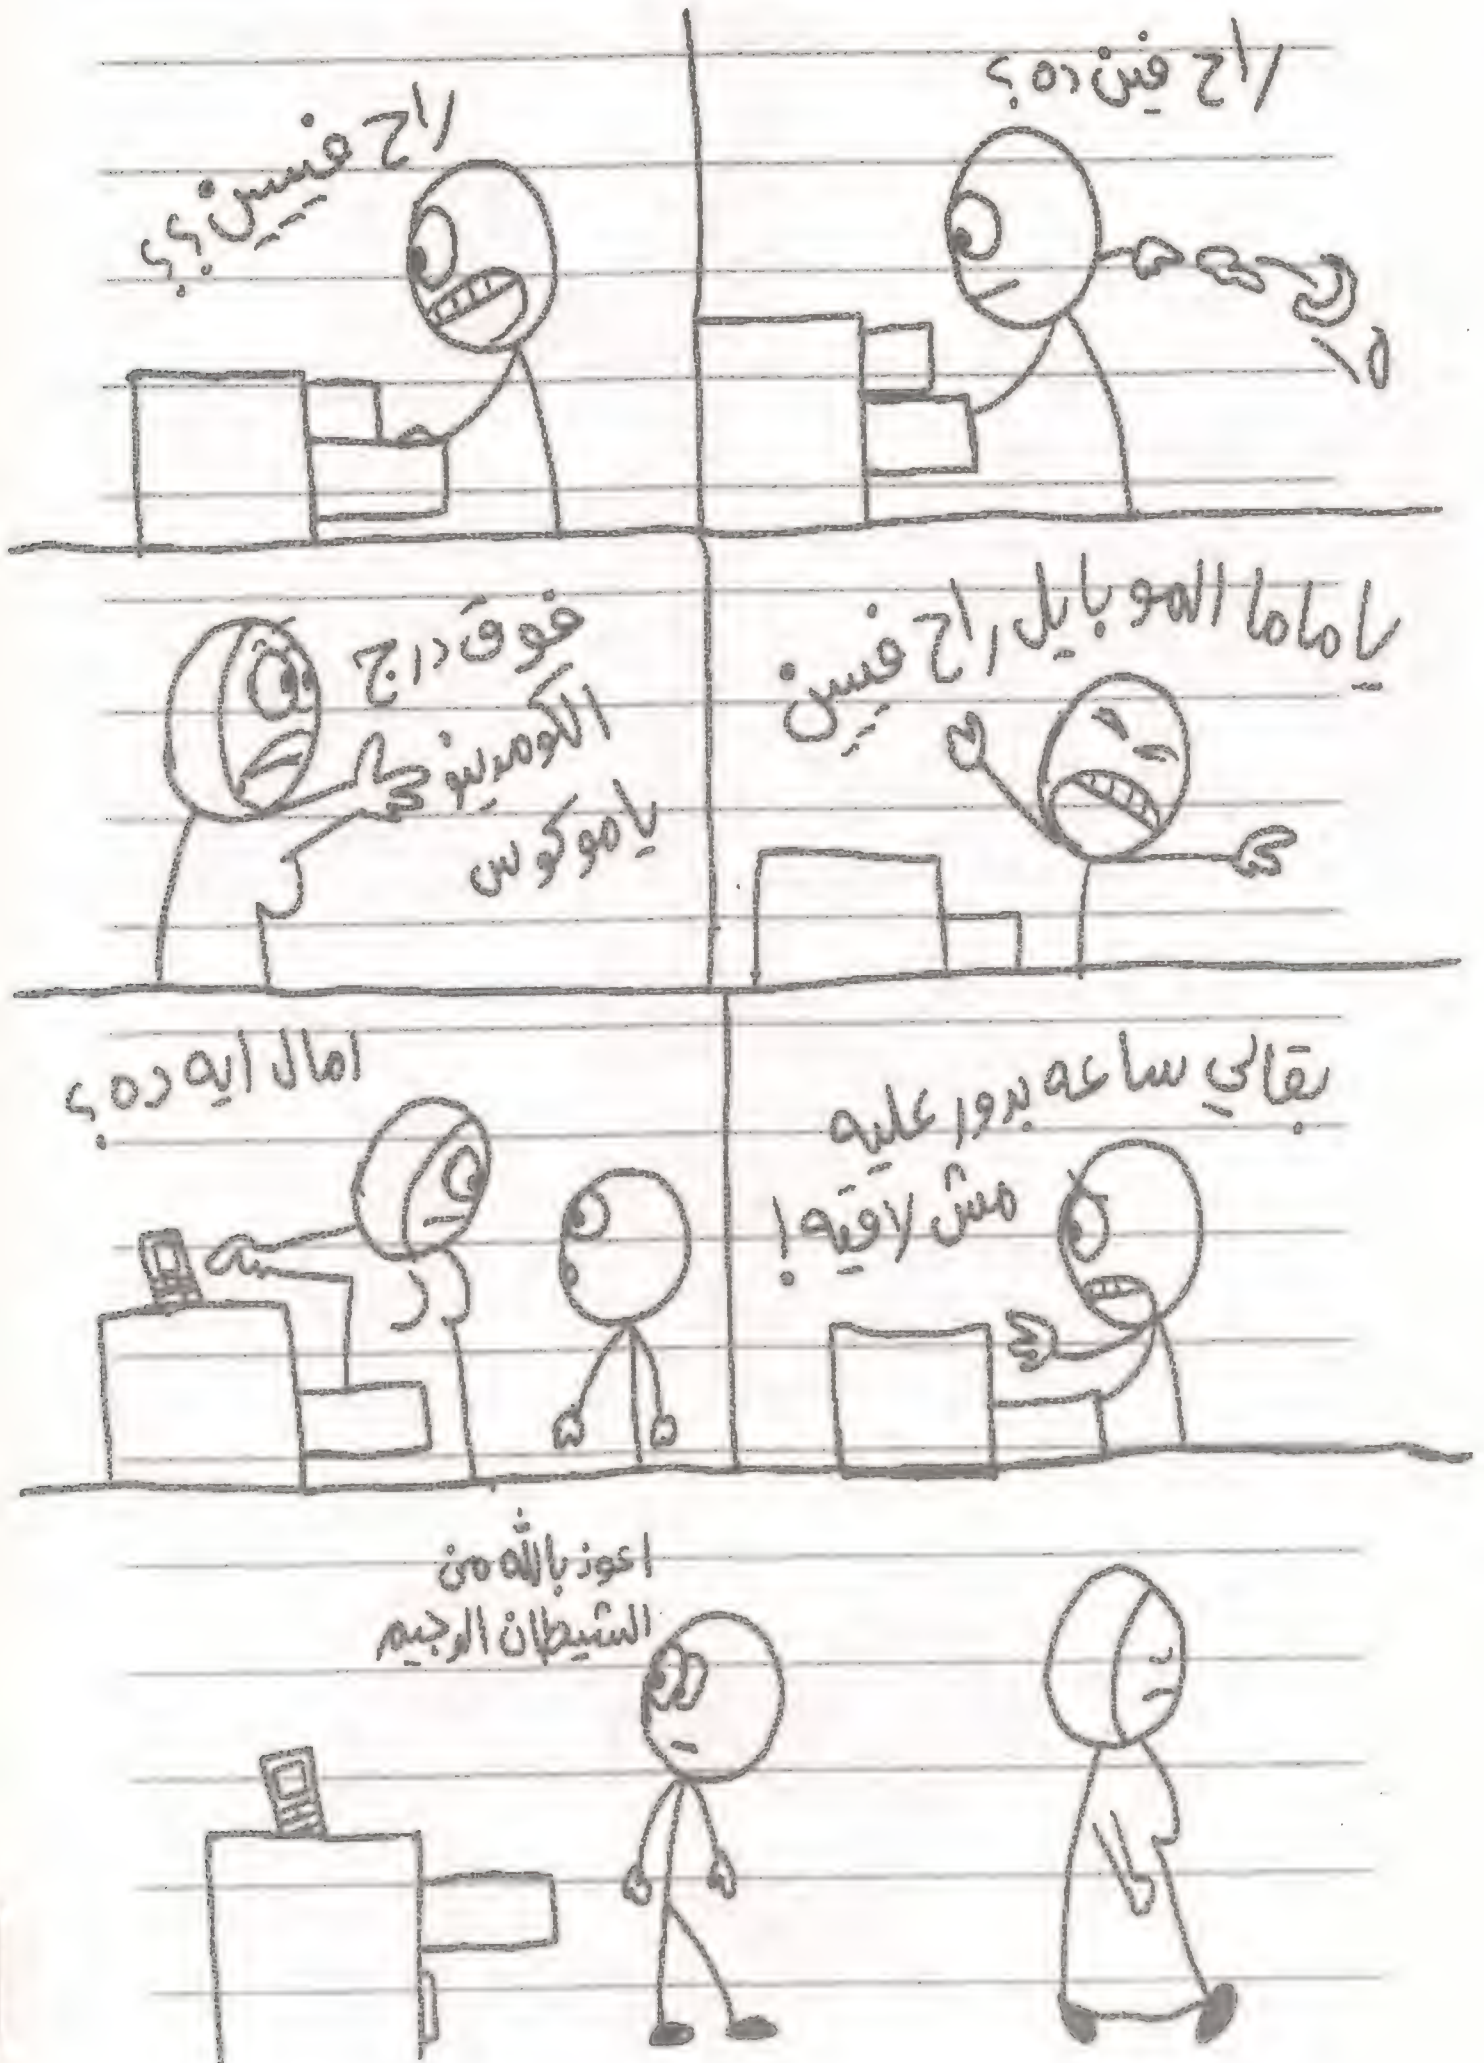 راح فين ده؟
راح فييين؟؟
يا ماما الموبايل راح فييين
فوق درج
الكومدينو
يا موكوس
بقالي ساعه بدور عليه
مش لاقيه!
امال ايه ده؟
اعوذ بالله من
الشيطان الرجيم